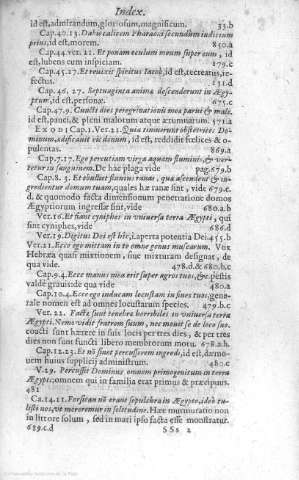 Index.
id est, admirandum, gloriosum, magnificum. 33.b
Cap.40.13. Dabis calicem Pharaoni secundum iudicium
prius, id est, morem. 850.a
Cap.44.ver.21. Et ponam oculum meum super eum, id
est, lubens eum inspiciam. 179.c
Cap.45.27. Et reuixit spiritus Iacob, id est, recreatus, re-
fectus. 151.d
Cap.46. 27. Septuaginta animæ descenderunt in Ægy-
ptum, id est, personæ. 675.c
Cap.47.9. Cuncti dies peregrinationis meæ parui & mali,
id est, pauci, & pleni malorum atque ærumnarum. 571.a
EXODI Cap.1. Ver.21. Quia timuerunt obstetrices Do-
minum, ædificauit eis domum, id est, reddidit stolices & o-
pulentas. 869.a
Cap.7.17. Ego percutiam virga aquam fluminis, & ver-
tetur in sanguinem. De hac plaga vide pag.679.b
Cap.8. 3. Et ebulliet fluuius ranas, quæ ascendent & in-
gredientur domum tuam, quales hæ ranæ sint, vide 679.c.
d. & quomodo facta dimensionum penetratione domos
Ægyptiorum ingressæ sint, vide 480.a.b
Ver.16. Et sint cyniphes in vniuersa terra Ægypti, qui
sint cyniphes, vide 686.d
Ver.19. Digitus Dei est hîc, i. aperta potentia Dei. 455.b
Ver.21. Ecce ego mittam in te omne genus muscarum. Vox
Hebræa quasi mixtionem, siue mixturam designat, de
qua vide. 478.d. & 680.b.c
Cap.9.4. Ecce manus mea erit super agros tuos, & pestis
valde grauis de qua vide 480.a
Cap.10.4. Ecce ego inducam locustam in fines tuos, gene-
rale nomen est ad omnes locustarum species. 479.b.c
Ver. 22. Factæ sunt tenebræ horribiles in vniuersa terra
Ægypti. Nemo vidit fratrem suum, nec mouit se de loco suo,
coacti sunt hærere in suis locis per tres dies, & per tres
dies non sunt functi libero membrorum motu. 678.a.b.
Cap.12.23. Et nõ sinet percussorem ingredi, id est, dæmo-
nem huius supplicij administrum. 480.c
V.29. Percussit Dominus omnem primogenitum in terra
Ægypti: omnem qui in familia erat primus & præcipuus.
481
Ca.14.11. Forsitan nõ erant sepulchra in Ægypto, ideo tu-
listi nos, vt moreremur in solitudine. Hæc murmuratio non
in littore solum, sed in mari ipso facta esse monstratur.
689.c.d SSs 2